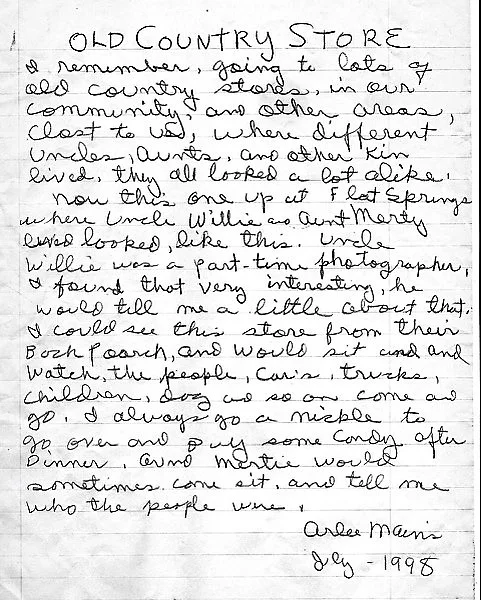 OLD COUNTRY STORE
I remember, going to lots of
old country stores, in our
community, and other areas,
Clost to us, where different
Uncles, Aunts, and other Kin
lived, they all looked a lot alike.
Now this one up at Flat Springs
where Uncle Willie an Aunt Merty
lived looked, like this. Uncle
Willie was a part-time photographer,
I found that very interesting, he
would tell me a little about that.
I could see this store from their
Back Poarch, and would sit and
Watch, the people, Car's, trucks,
children, dog an so on come an
go. I always go a nickle to
go over and buy some candy after
Dinner. Aund Mertie would
sometimes come sit, and tell me
who the people were.
Arlee Mains
July - 1998